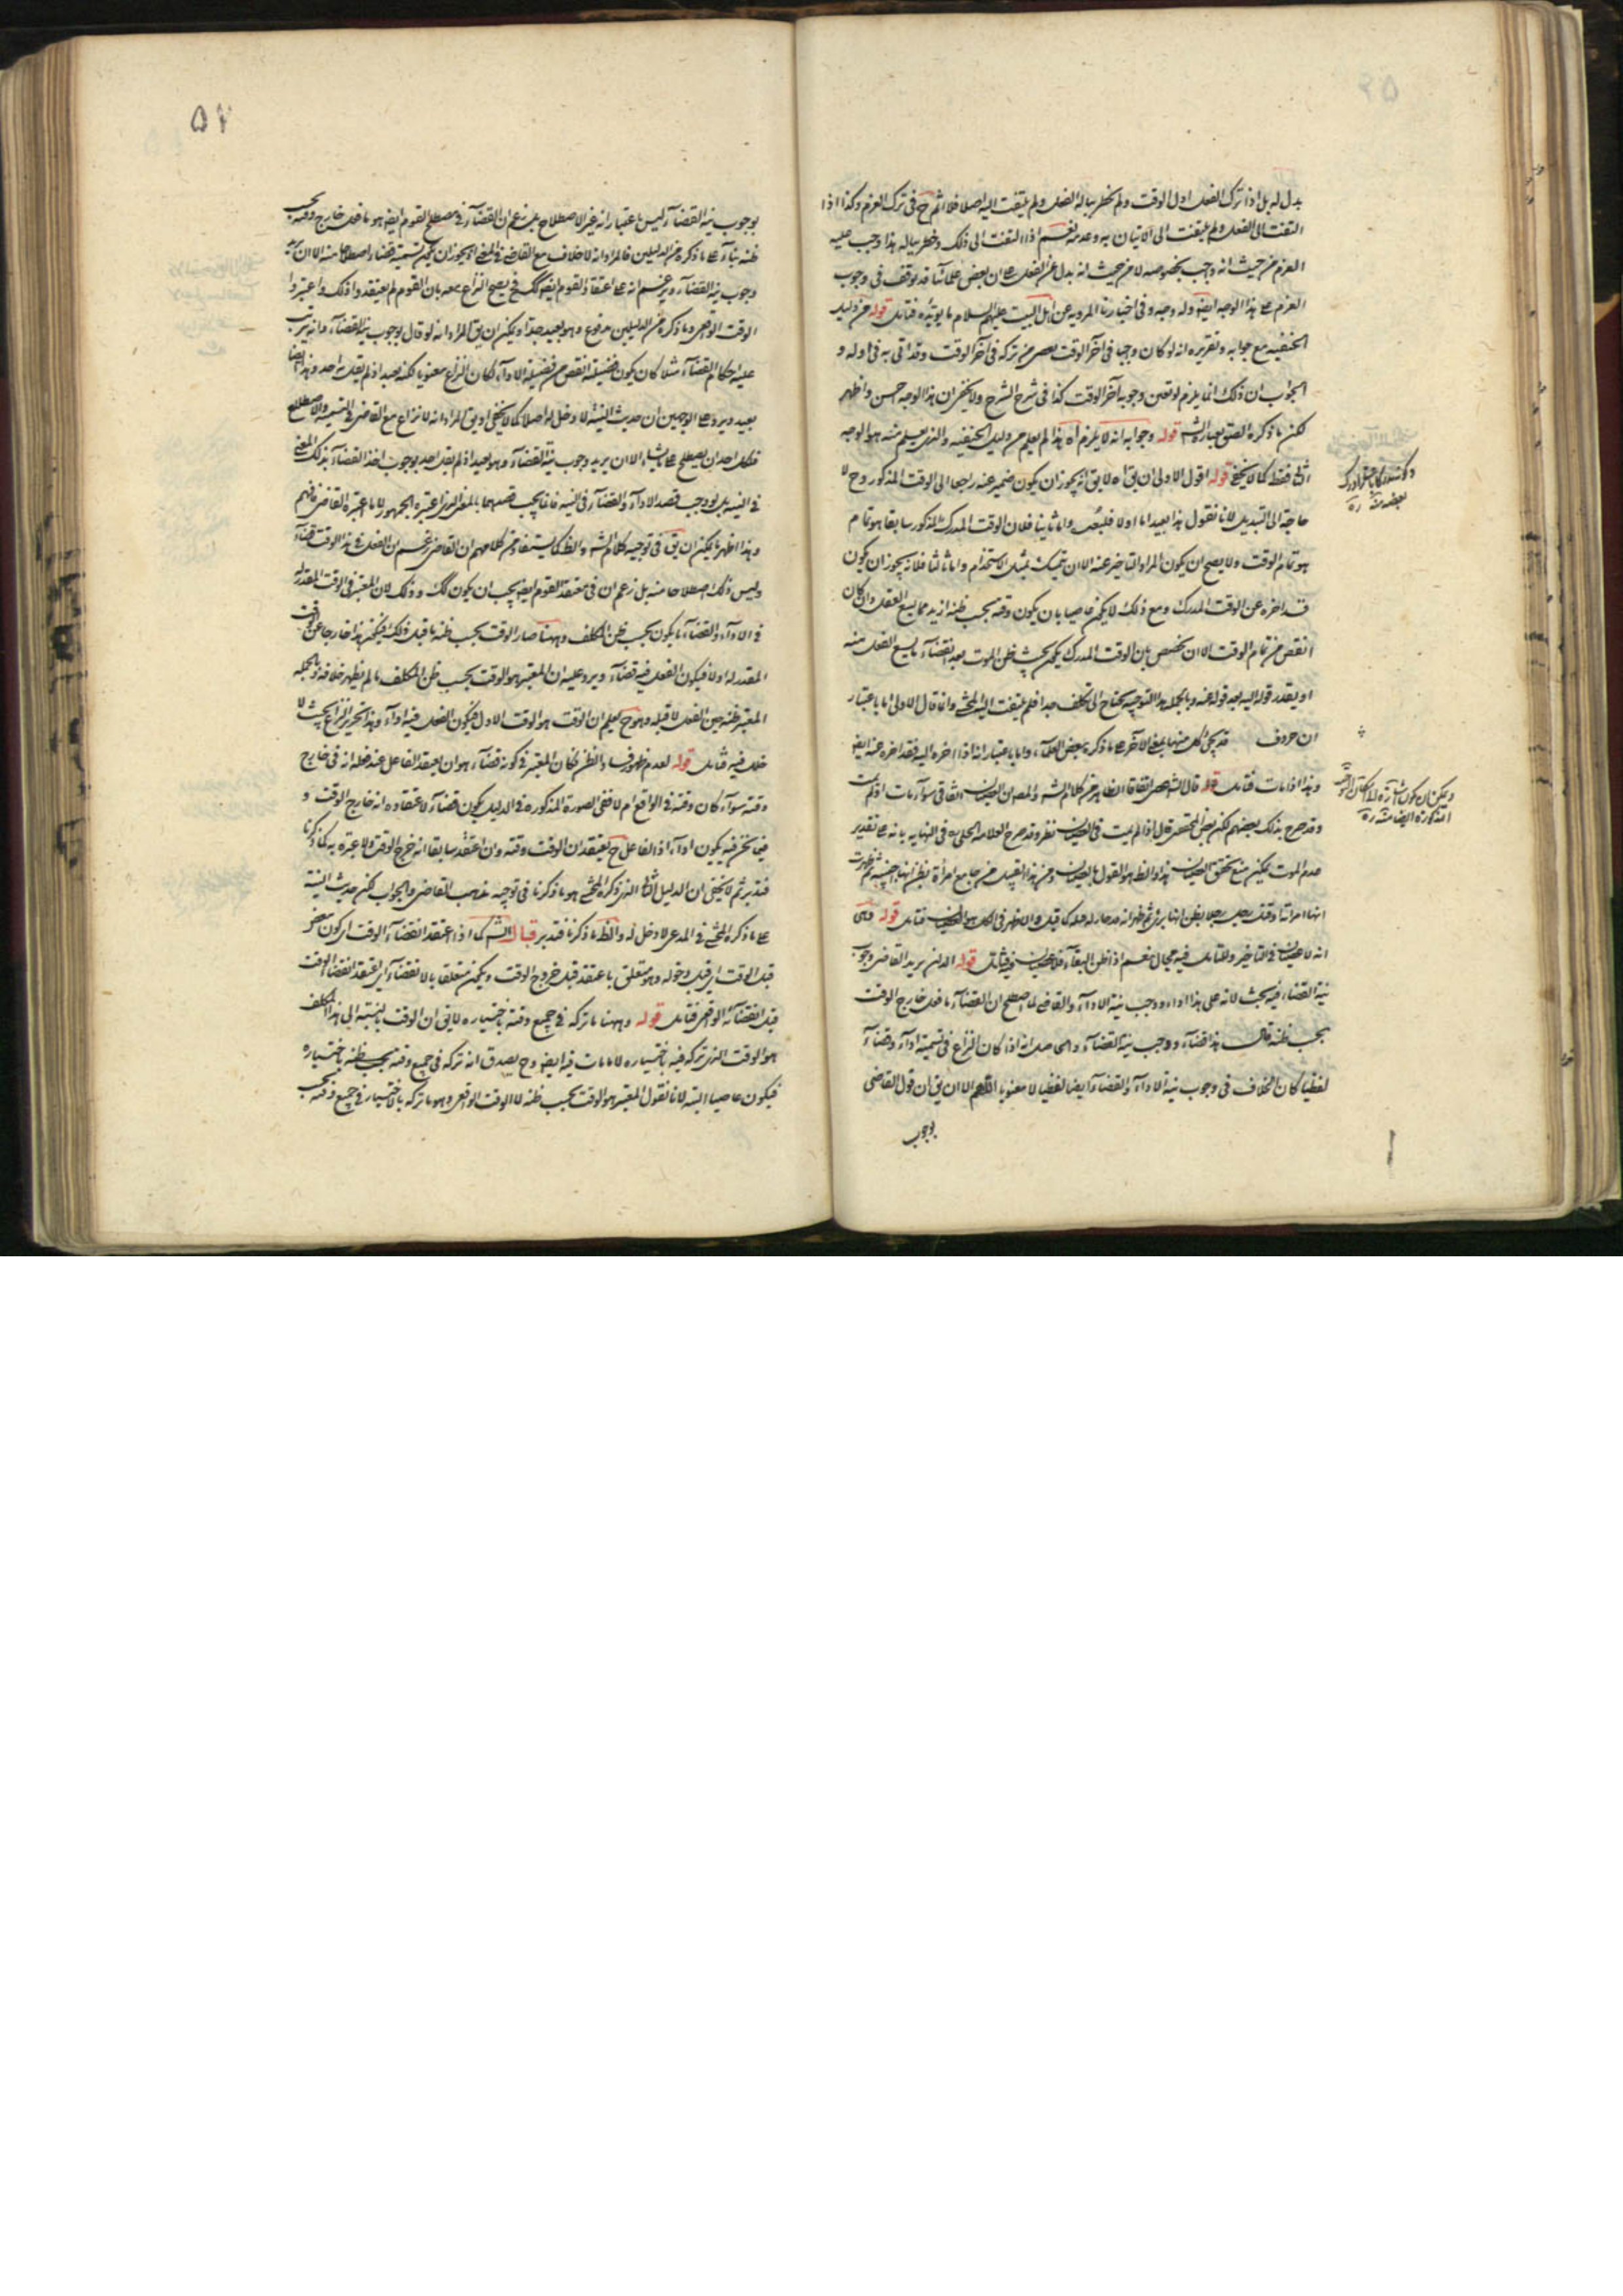 بدل له بل اذا ترك الفعل اول الوقت ولم يخطر بباله الفعل ولم يلتفت اليه اصلا فلا اثم ح في ترك العزم وكذا اذا
التفت الى الفعل ولم يلتفت الى الاتيان به وعدمه نعم اذا التفت الى ذلك وخطر بباله هذا وجب عليه
العزم من حيث انه واجب بخصوصه لا من حيث انه بدل عن الفعل على ان بعض علمائنا قد توقف في وجوب
العزم على هذا الوجه ايضا وله وجه وفي اخبارنا المروية عن اهل البيت عليهم السلام ما يؤيده فتامل قوله من دليل
الحنفية مع جوابه وتقريره انه لو كان واجبا في آخر الوقت بعصي من تركه في آخر الوقت وقد اتى به في اوله و
الجواب ان ذلك انما يلزم لو تعين وجوبه آخر الوقت كذا في شرح الشرح ولا يخفى ان هذا الوجه احسن واظهر
لكن ما ذكره الصق بعبارة الشه قوله وجوابه انه لا يلزم اه هذا لم يعلم من دليل الحنفية والذي يعلم منه هو الوجه
الثاني فقط كما لا يخفى قوله اقول الاولى ان يق اه لا يق انه يجوز ان يكون ضمير عنه راجعا الى الوقت المذكور وح لا
حاجة الى التبديل لانا نقول هذا بعيد اما اولا فلبعد واما ثانيا فلان الوقت المدرك المذكور سابقا هو تمام
هو تمام الوقت ولا يصح ان يكون المراد التاخير عنه الا ان يتمسك بمثل الاستخدام واما ثالثا فلانه يجوز ان يكون
قد اخره عن الوقت المدرك ومع ذلك لا يكون عاصيا بان يكون وقته بحسب ظنه ازيد مما يسع الفعل وان كان
انقص من تمام الوقت الا ان يخصص بان الوقت المدرك يكون بحيث ظن الموت بعد انقضاء ما يسع الفعل منه
او يقدر قوله اليه بعد قوله عنه وبالجملة هذا التوجيه يحتاج الى تكلف جدا فلم يلتفت اليه المحشي وانما قال الاولى اما باعتبار
ان حروف قد يجئ كل منها بمعنى الآخر على ما ذكره بعض العلماء واما باعتبار انه اذا اخره اليه فقد اخره عنه ايضا
وهذا اذا مات فتامل قوله قال الشه عصى اتفاقا الظاهر من كلام الشه والمص ان العصيان اتفاقي سواء مات او لم يمت
وقد صرح بذلك بعضهم لكن بعض المختصر قال اذا لم يمت في العصيان نظر وقد صرح العلامة الحلي ره في النهاية بانه على تقدير
عدم الموت يمكن منع تحقق العصيان هذا والظ هو القول بالعصيان ومن هذا القبيل من جامع امرأة بظن انها اجنبية ثم ظهرت
انها امراته او قتل رجل رجلا بظن انها بريئ ثم ظهر انه مدحا له قتله كما قيل والاظهر في الكل هو العصيان فتامل قوله وهي
انه لا عصيان في التاخير وللتامل فيه مجال نعم اذا ظن البقاء فلا عصيان قوله الذي يريد القاضي وجوب
نية القضاء فيه بحث لانه على هذا اداء ووجب نية الاداء والقاضي لما اصطلح ان القضاء ما فعل خارج الوقت
بحسب ظنه قال هذا قضاء ووجب نية القضاء والحاصل انه اذا كان النزاع في تسميته اداء وقضاء
لفظيا كان الخلاف في وجوب نية الاداء والقضاء ايضا لفظيا لا معنويا اللهم الا ان يق ان قول القاضي
بوجوب
بعضه منه ره
ايضا منه ره
۵۲
بوجوب نية القضاء ليس باعتبار انه غير الاصطلاح بل زعم ان القضاء في مصطلح القوم ايضا هو ما فعل خارج وقته بحسب
ظنه بناء على ما ذكره من الدليلين فالمراد انه لا خلاف مع القاضي في المعنى اذ يجوز ان يكون تسميته قضاء اصطلاحا منه الا ان يريد
وجوب نية القضاء ويزعم انه على اعتقاد القوم ايضا كك فح يصح النزاع معه بان القوم لم يعتقدوا ذلك واعتبروا
الوقت الواقعي وما ذكره من الدليلين مدفوع وهو بعيد جدا ويمكن ان يق المراد انه لو قال بوجوب نية القضاء وانه يترتب
عليه احكام القضاء مثلا كان يكون فضيلته انقص من فضيلة الاداء لكان النزاع معنويا لكنه بعيد اذ لم يقل به احد وهذا ايضا
بعيد ويرد على الوجهين ان حديث النية لا دخل له اصلا كما لا يخفى او يق المراد انه لا نزاع مع القاضي في التسمية والاصطلاح
فلكل احد ان يصطلح على ما يشاء الا ان يريد وجوب نية القضاء وهو بعيد اذ لم يقل احد بوجوب اخذ القضاء بذلك المعنى
في النية بل لو وجب قصد الاداء والقضاء في النية فانما يجب قصدهما بالمعنى الذي اعتبره الجمهور لا ما اعتبره القاضي فافهم
وهذا اظهر ما يمكن ان يق في توجيه كلام الشه والظ كما يستفاد من كلامهم ان القاضي زعم ان الفعل في هذا الوقت قضاء
وليس ذلك اصطلاحا منه بل زعم ان في معتقد القوم ايضا يجب ان يكون كك وذلك لان المعتبر في الوقت المقدر
في الاداء والقضاء ما يكون بحسب ظن المكلف وههنا صار الوقت بحسب ظنه ما قبل ذلك فيكون هذا خارجا عن الوقت
المقدر له اولا فيكون الفعل فيه قضاء ويرد عليه ان المعتبر هو الوقت بحسب ظن المكلف ما لم يظهر خلافه وبالجملة
المعتبر ظنه حين الفعل لا قبله وهو ح يعلم ان الوقت هو الوقت الاول فيكون الفعل فيه اداء وهذا تحرير النزاع بحيث لا
خلل فيه فتامل قوله لعدم ظهور فساد الظن لكان المعتبر في كونه قضاء هو ان يعتقد الفاعل عند فعله انه في خارج
وقته سواء كان وقته في الواقع ام لا ففي الصورة المذكورة في الدليل يكون قضاء لاعتقاده انه خارج الوقت و
فيما نحن فيه يكون اداء اذ الفاعل ح يعتقد ان الوقت وقته وان اعتقد سابقا انه خرج الوقت ولا عبرة به كما ذكرنا
فتدبر ثم لا يخفى ان الدليل الثاني الذي ذكره المحشي هو ما ذكرنا في توجيه مذهب القاضي والجواب لكن حديث النية
على ما ذكره المحشي في المدعى لا دخل له والظ ما ذكرنا فتدبر قال الشه كما اذا اعتقد انقضاء الوقت اي كون
قبل الوقت اي قبل دخوله وهو متعلق باعتقد قبل خروج الوقت ويمكن متعلقا بالانقضاء اي اعتقد انقضاء الوقت
قبل انقضائه الواقعي فتامل قوله وههنا ما تركه في جميع وقته باختياره لا يق ان الوقت بالنسبة الى هذا المكلف
هو الوقت الذي تركه فيه باختياره لا ما مات فيه ايضا وح يصدق انه تركه في جميع وقته بحسب ظنه باختياره
فيكون عاصيا البتة لانا نقول المعتبر هو الوقت بحسب ظنه لا الوقت الواقعي وهو ما تركه بالاختيار في جميع وقته بحسب